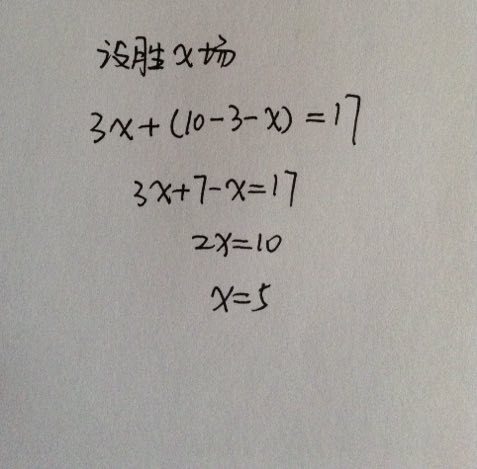 设胜x场
3x+(10-3-x)=17
3x+7-x=17
2x=10
x=5